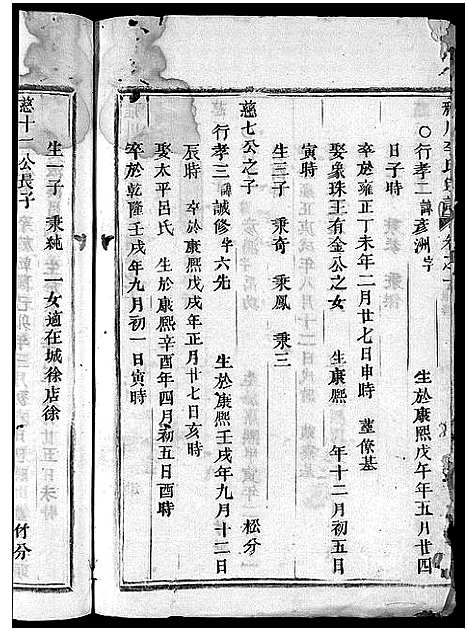 ○行孝二諱彥洲字　生於康熙戊午年五月廿四
日子時
卒於雍正丁未年二月廿七日申時　塟像墓
娶象珠王有金公之女　生康熙　年十二月初五日
寅時
生三子　秉奇　秉鳳　秉三
慈七公之子　松分
行孝三諱誠修字六先　生於康熙壬戌年九月十二日
辰時　卒於康熙戊戌年正月廿七日亥時
娶太平呂氏　生於康熙辛酉年四月初五日酉時
卒於乾隆壬戌年九月初一日寅時
生一子　秉純　一女適在城徐店徐
慈十一公長子　付分